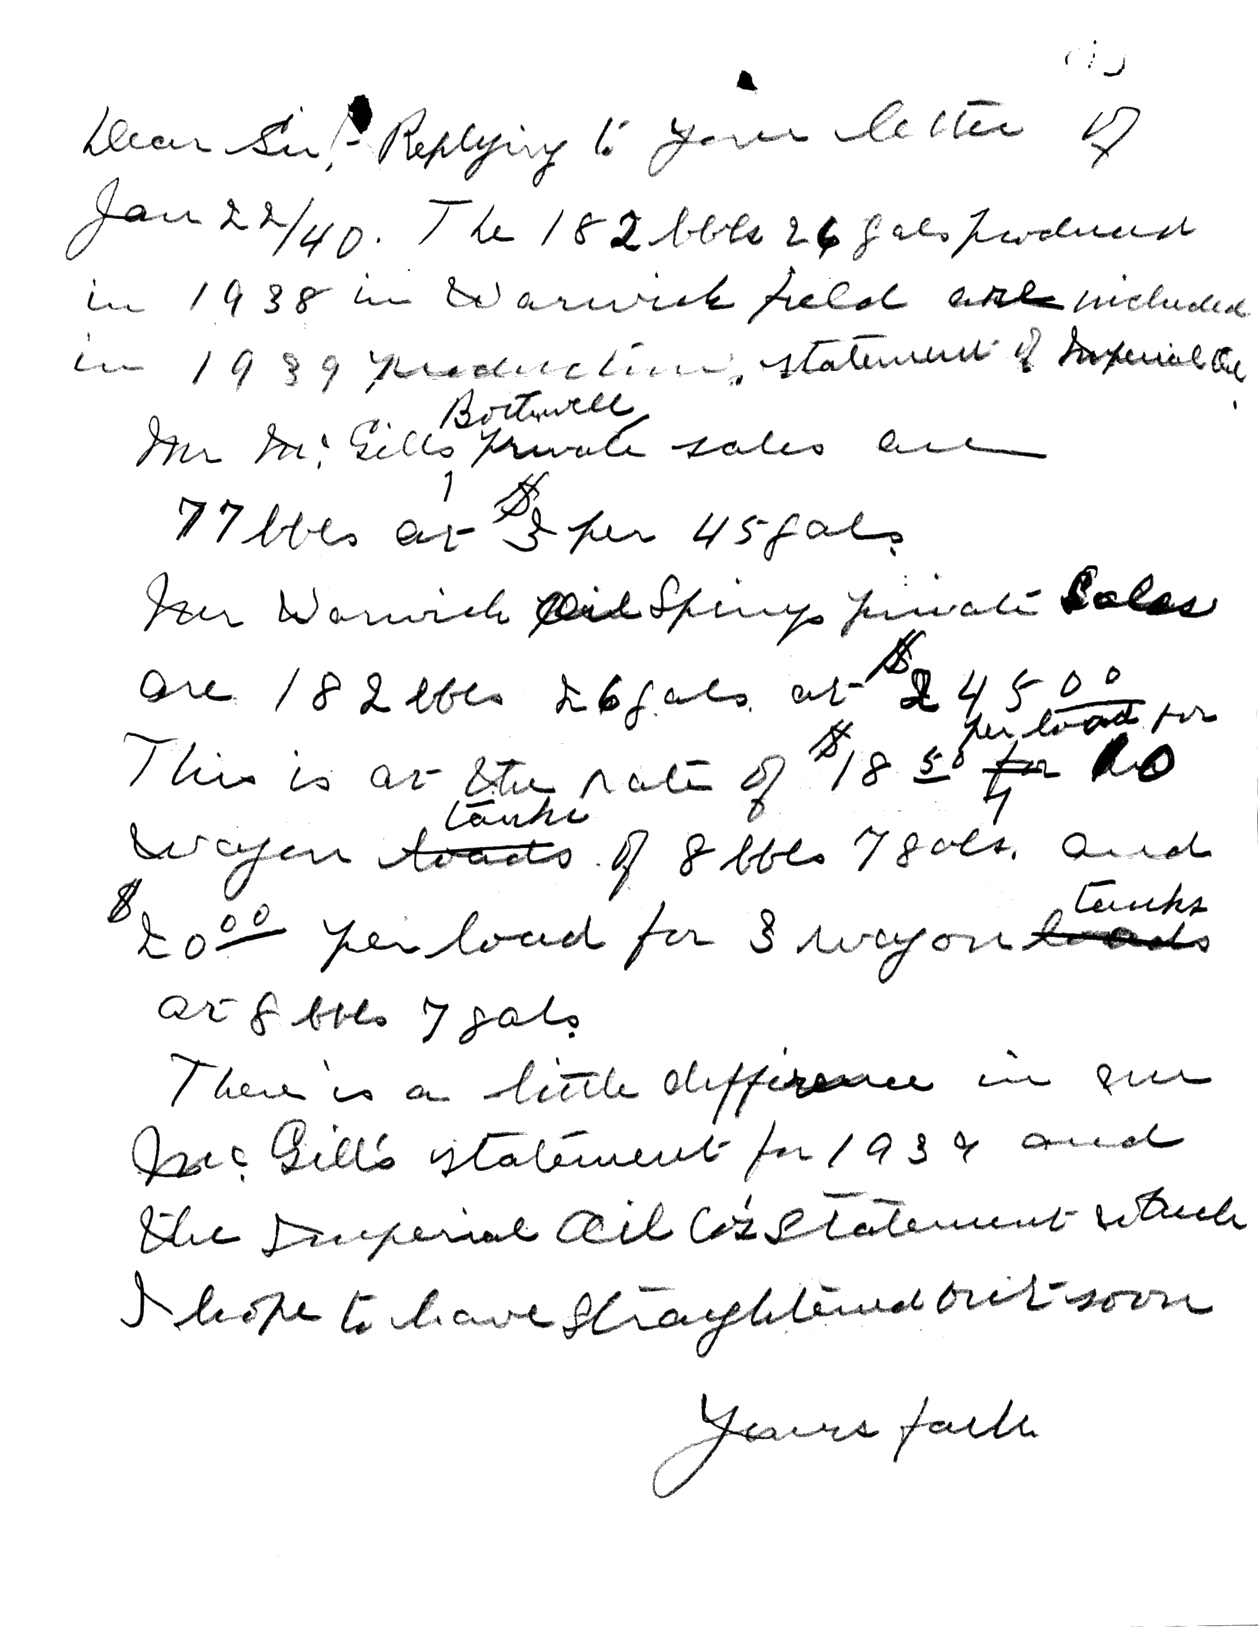 Dear Sir:- Replying to your letter of
Jan 22/40. The 182 bbls 26 gals produced
in 1938 in Warwick field are included
in 1939 production, statement of Imperial Oil
Bothwell
Mr Mc Gills private sales are
77 bbls at $3 per 45 gals.
Warwick Oil Springs private Sales
are 182 bbls 26 gals. at $245.00
per load for
This is at the rate of $18.50 for 10
tanks
wagon loads of 8 bbls 7 gals. and
tanks
$20.00 per load for 3 wagon loads
at 8 bbls 7 gals.
There is a little difference in our
Mc Gill's statement for 1939 and
the Imperial Oil Co's Statement which
I hope to have straightened out soon
Yours faith